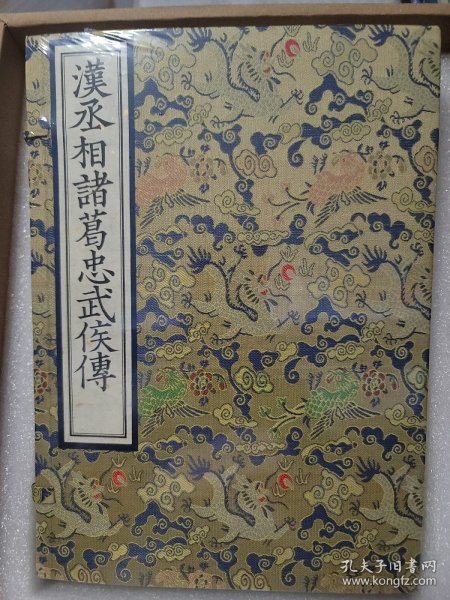 漢丞相諸葛忠武侯傳
孔夫子旧书网
www.kongfz.com